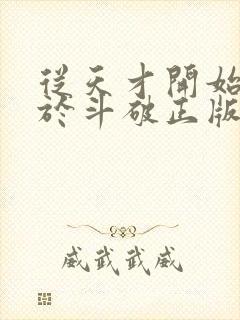 從天才開始
於斗破正版
威武武威